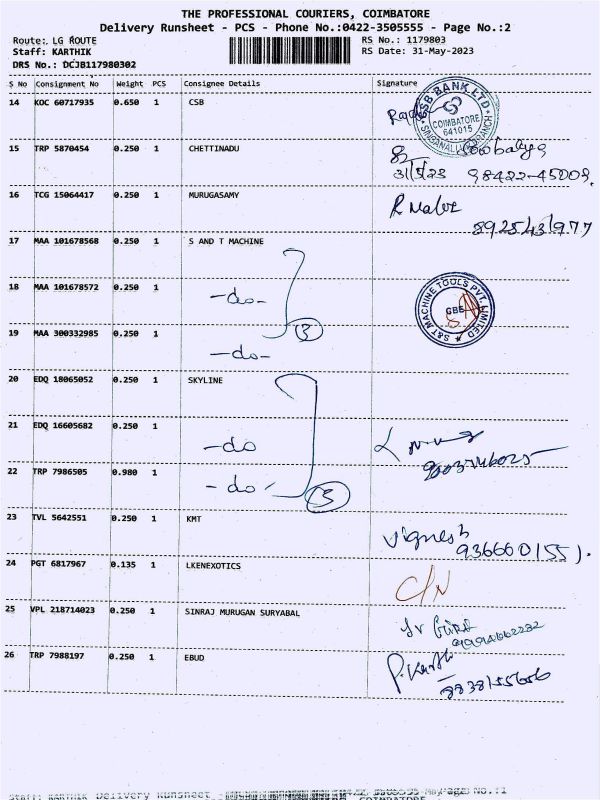 THE PROFESSIONAL COURIERS, COIMBATORE
Delivery Runsheet - PCS - Phone No.:0422-3505555 - Page No.:2
Route: LG ROUTE RS No.: 1179803
Staff: KARTHIK RS Date: 31-May-2023
DRS No.: DCJB117980302
S No Consignment No Weight PCS Consignee Details Signature
14 KOC 60717935 0.650 1 CSB
CSB BANK LTD COIMBATORE 641015
15 TRP 5870454 0.250 1 CHETTINADU
31/5/23 98422-45009.
16 TCG 15064417 0.250 1 MURUGASAMY
8925431977
17 MAA 101678568 0.250 1 S AND T MACHINE
18 MAA 101678572 0.250 1 -do-
S&T MACHINE TOOLS PVT. LIMITED CBE
3
19 MAA 300332985 0.250 1 -do-
20 EDQ 18065052 0.250 1 SKYLINE
21 EDQ 16605682 0.250 1 -do
22 TRP 7986505 0.980 1 -do-
3
23 TVL 5642551 0.250 1 KMT
Vignesh
9366601551.
24 PGT 6817967 0.135 1 LKENEXOTICS
C/N
25 VPL 218714023 0.250 1 SINRAJ MURUGAN SURYABAL
26 TRP 7988197 0.250 1 EBUD
8838155656
Staff: KARTHIK Delivery Runsheet No.:1
COIMBATORE